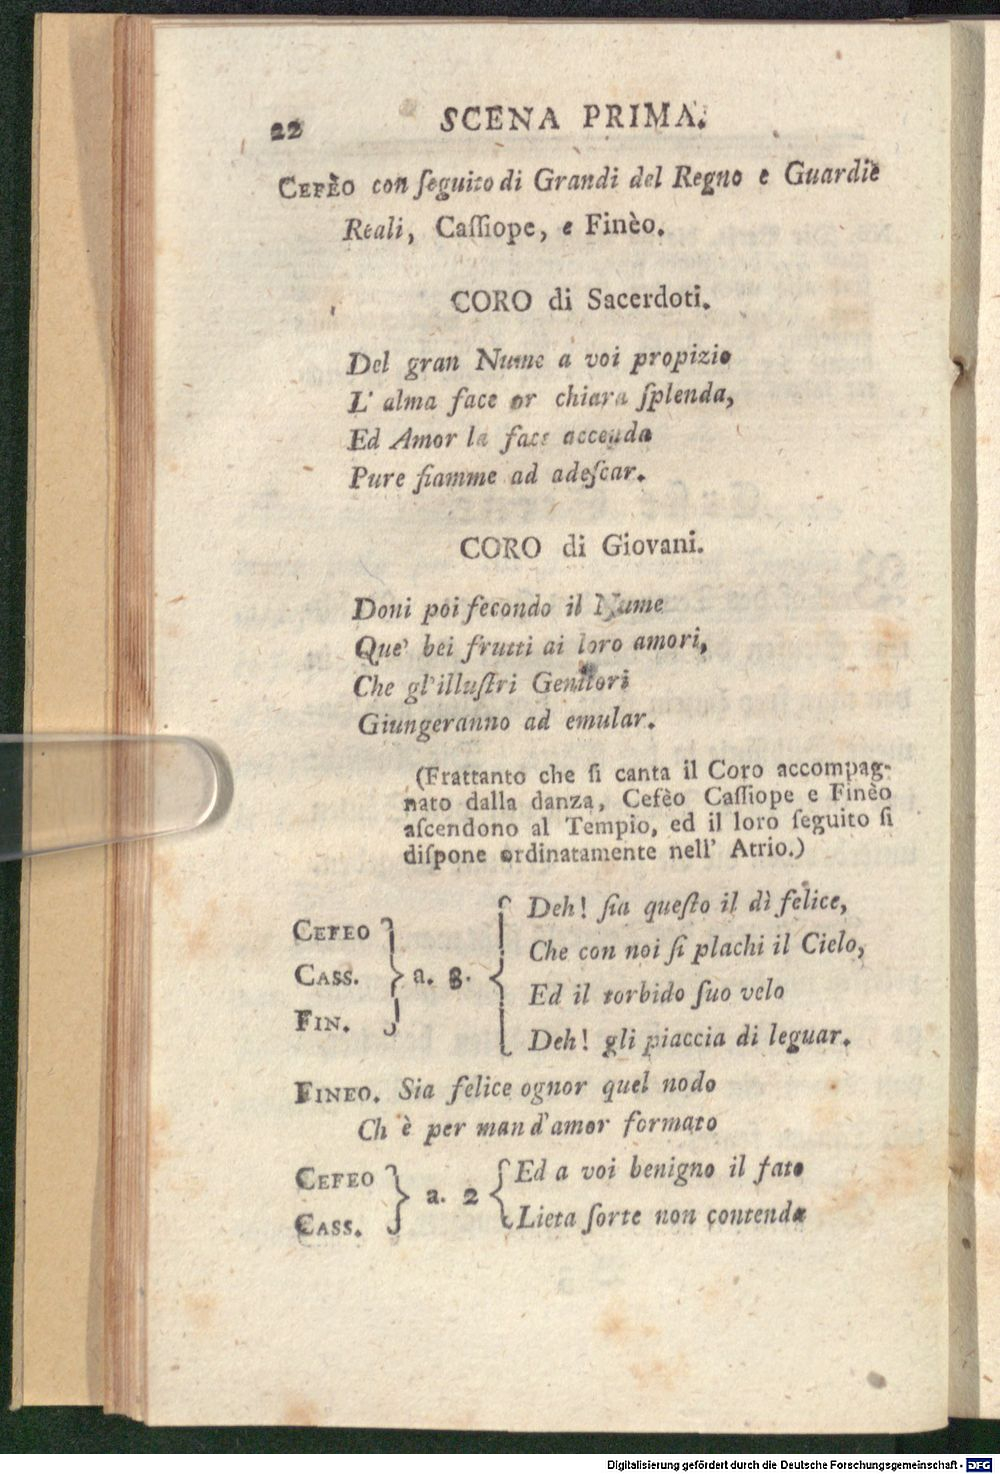 22 SCENA PRIMA.
CEFÈO con ſeguito di Grandi del Regno e Guardie
Reali, Caſſiope, e Finèo.
CORO di Sacerdoti.
Del gran Nume a voi propizio
L' alma face or chiara ſplenda,
Ed Amor la face accenda
Pure fiamme ad adeſcar.
CORO di Giovani.
Doni poi fecondo il Nume
Que' bei frutti ai loro amori,
Che gl'illuſtri Genitori
Giungeranno ad emular.
(Frattanto che ſi canta il Coro accompag-
nato dalla danza, Cefèo Caſſiope e Finèo
aſcendono al Tempio, ed il loro ſeguito ſi
diſpone ordinatamente nell' Atrio.)
CEFEO
CASS.
FIN.
a. 3.
Deh! ſia queſto il dì felice,
Che con noi ſi plachi il Cielo,
Ed il torbido ſuo velo
Deh! gli piaccia di leguar.
FINEO. Sia felice ognor quel nodo
Ch è per man d'amor formato
CEFEO
CASS.
a. 2
Ed a voi benigno il fato
Lieta ſorte non contenda
Digitalisierung gefördert durch die Deutsche Forschungsgemeinschaft - DFG